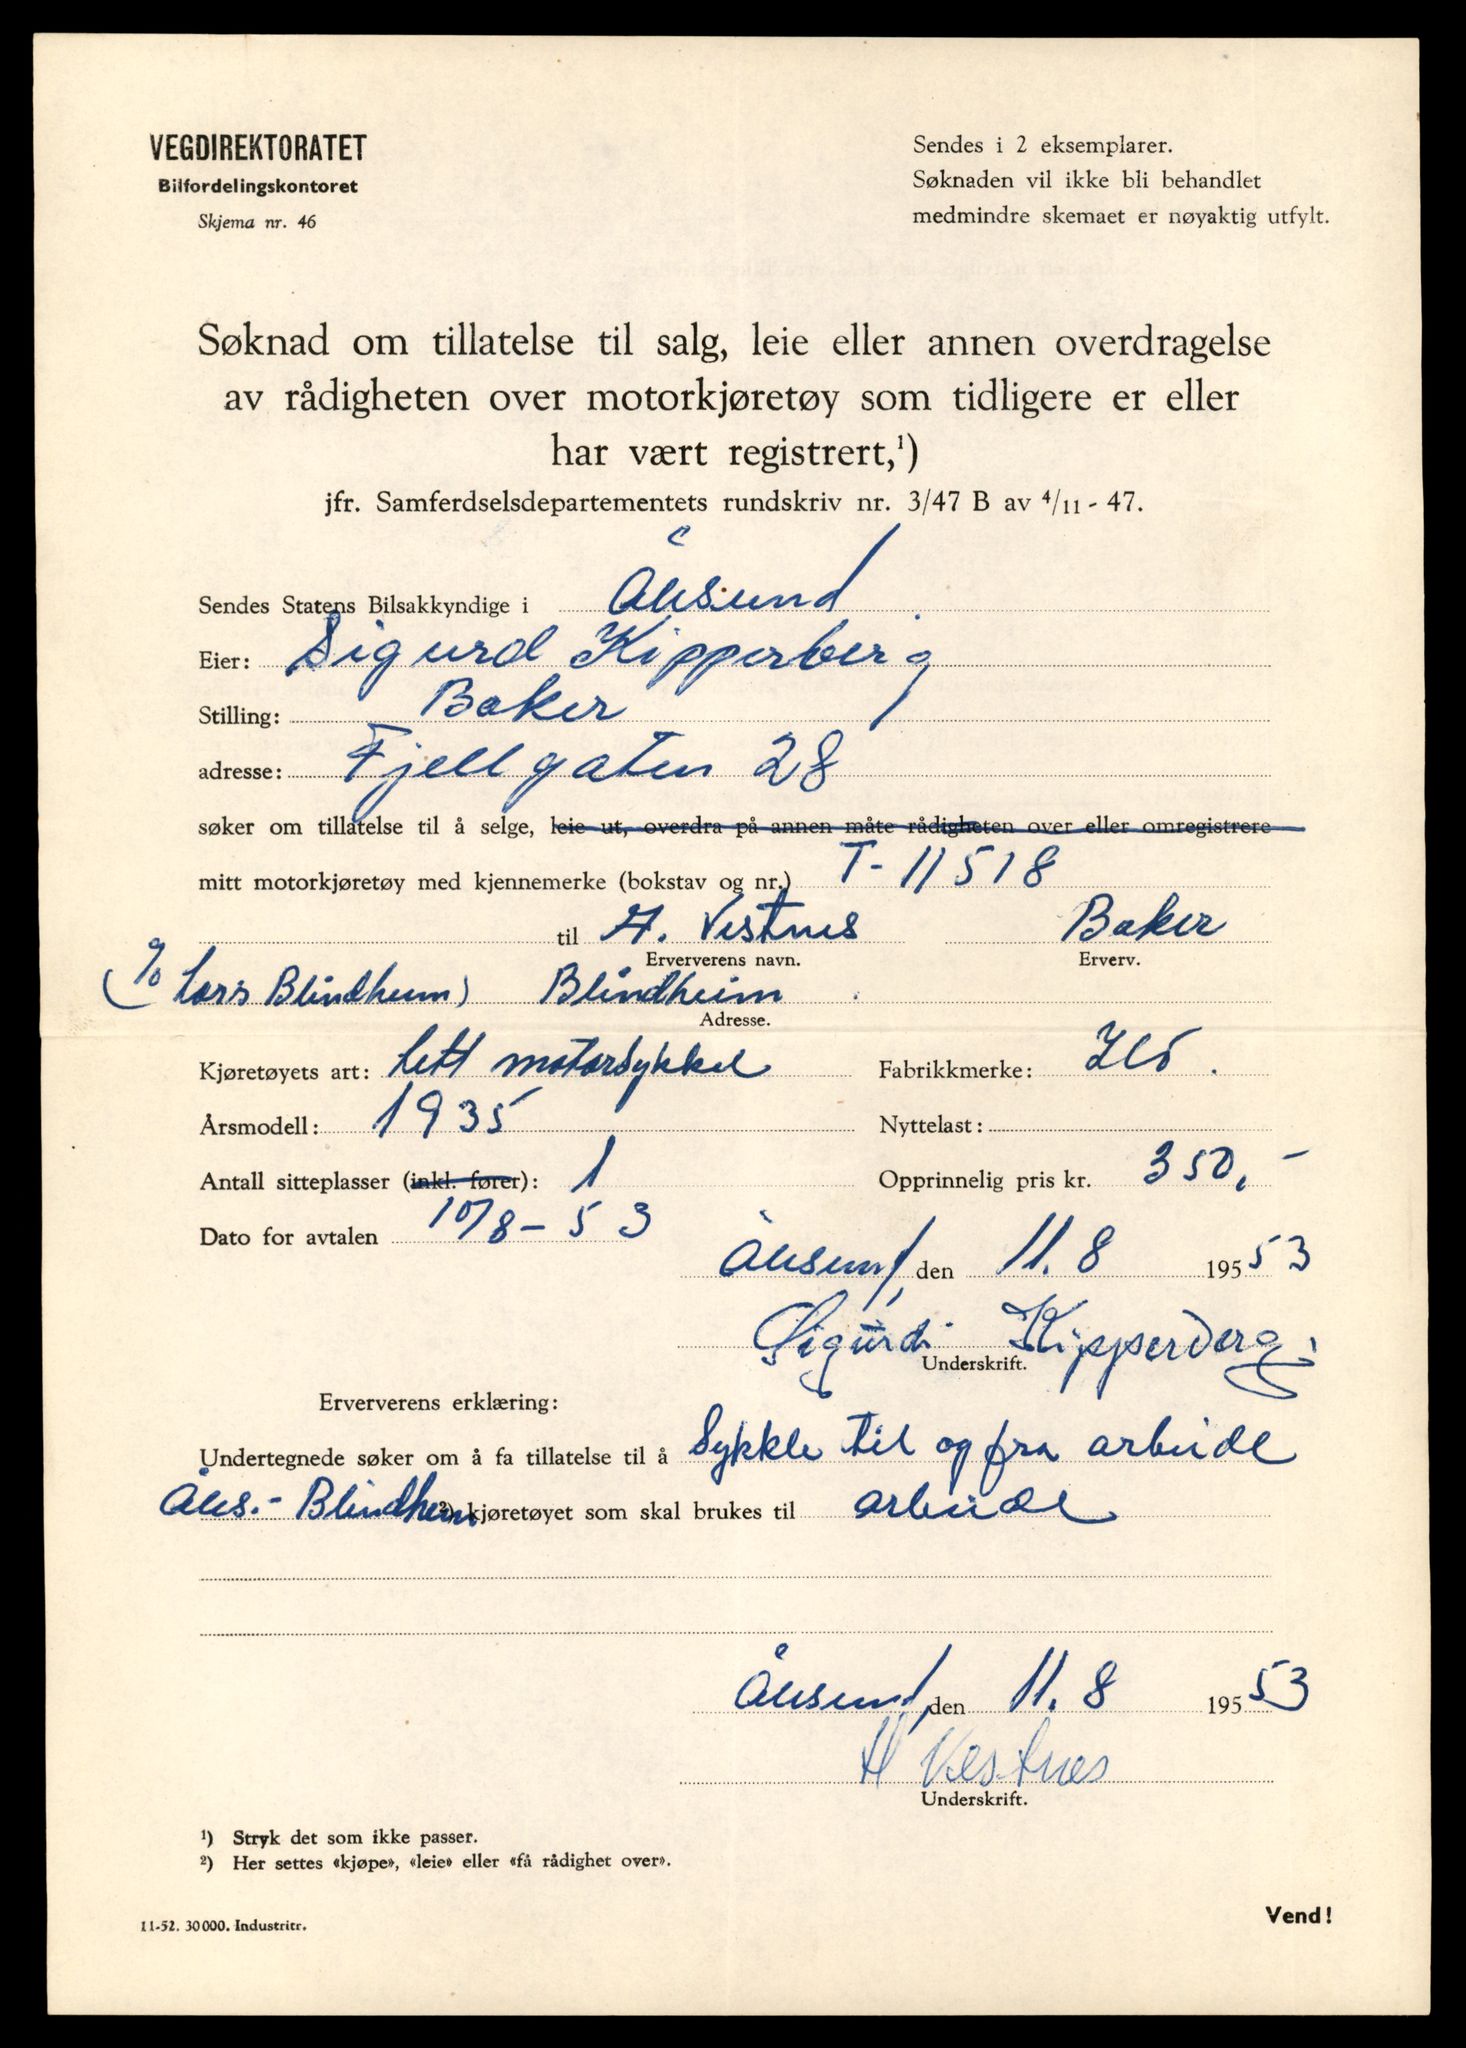 VEGDIREKTORATET
Bilfordelingskontoret
Skjema nr. 46
Sendes i 2 eksemplarer.
Søknaden vil ikke bli behandlet
medmindre skemaet er nøyaktig utfylt.
Søknad om tillatelse til salg, leie eller annen overdragelse
av rådigheten over motorkjøretøy som tidligere er eller
har vært registrert,¹)
jfr. Samferdselsdepartementets rundskriv nr. 3/47 B av 4/11 - 47.
Sendes Statens Bilsakkyndige i Ålesund
Eier: Sigurd Kipperberg
Stilling: Baker
adresse: Fjellgaten 28
søker om tillatelse til å selge, leie ut, overdra på annen måte rådigheten over eller omregistrere
mitt motorkjøretøy med kjennemerke (bokstav og nr.) T-11518
til H. Vestnes Baker
Erververens navn. Erverv.
(% Lars Blindheim) Blindheim
Adresse.
Kjøretøyets art: Lett motorsykkel Fabrikkmerke: Ilo.
Årsmodell: 1935 Nyttelast:
Antall sitteplasser (inkl. fører): 1 Opprinnelig pris kr. 350,-
Dato for avtalen 10/8-53
Ålesund, den 11.8 195 53
Sigurd Kipperberg
Underskrift.
Erververens erklæring:
Undertegnede søker om å fa tillatelse til å Sykkle til og fra arbeide
Åles.- Blindheim ²) kjøretøyet som skal brukes til arbeide
Ålesund, den 11.8 195 53
H Vestnes
Underskrift.
¹) Stryk det som ikke passer.
²) Her settes «kjøpe», «leie» eller «få rådighet over».
11-52. 30000. Industritr.
Vend!